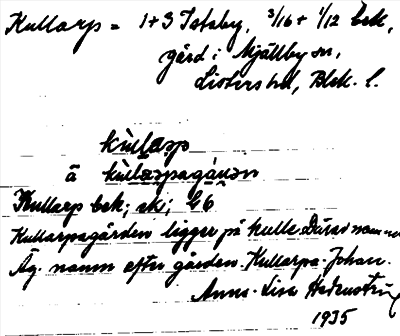 Kullarp = 1+3 Istaby, 3/16 + 1/12 bek,
gård i Mjällby sn,
Listers hd, Blek. l.
kullarp
ä kullarpagården
Kullarp bek; sk; GG
Kullarpagården ligger på kulle. Därav namnet
Äg. namn efter gården. Kullarpa-Johan.
Anna-Lisa
1935